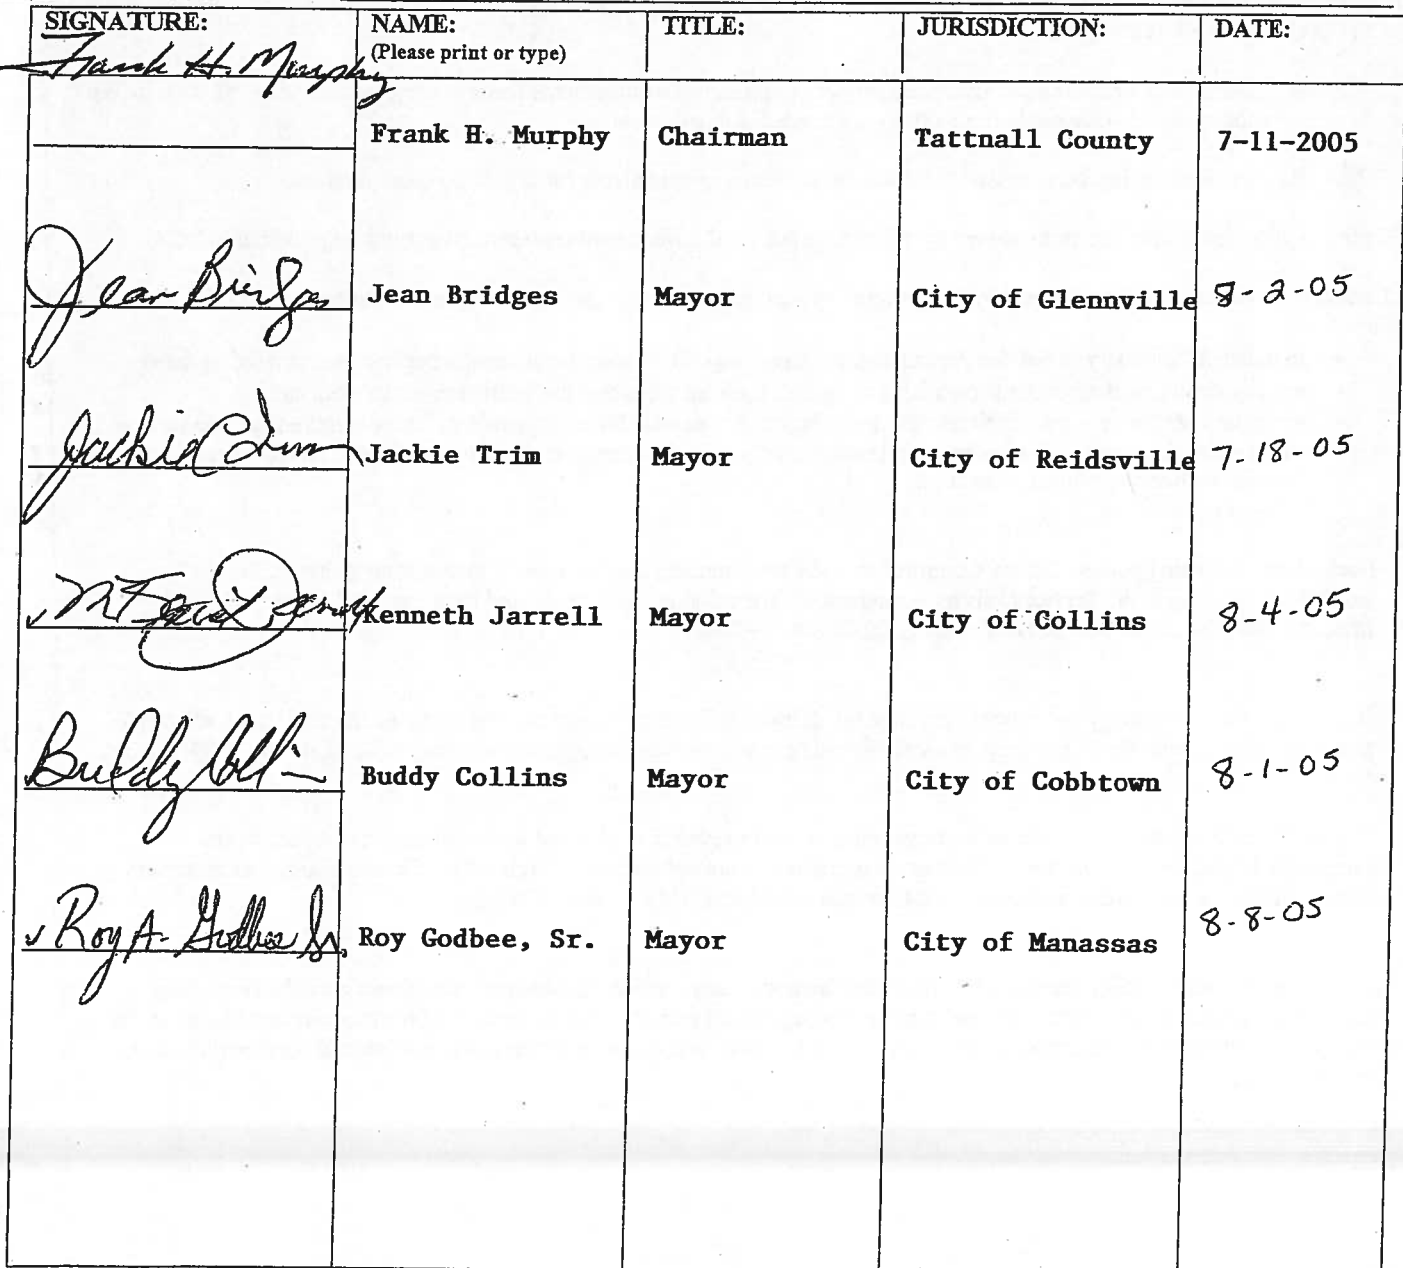 SIGNATURE: NAME: TITLE: JURISDICTION: DATE:
(Please print or type)
Frank H. Murphy
Frank H. Murphy Chairman Tattnall County 7-11-2005
Jean Bridges Jean Bridges Mayor City of Glennville 8-2-05
Jackie Trim Jackie Trim Mayor City of Reidsville 7-18-05
Kenneth Jarrell Mayor City of Collins 8-4-05
Buddy Collins Buddy Collins Mayor City of Cobbtown 8-1-05
Roy A. Godbee Sr. Roy Godbee, Sr. Mayor City of Manassas 8-8-05